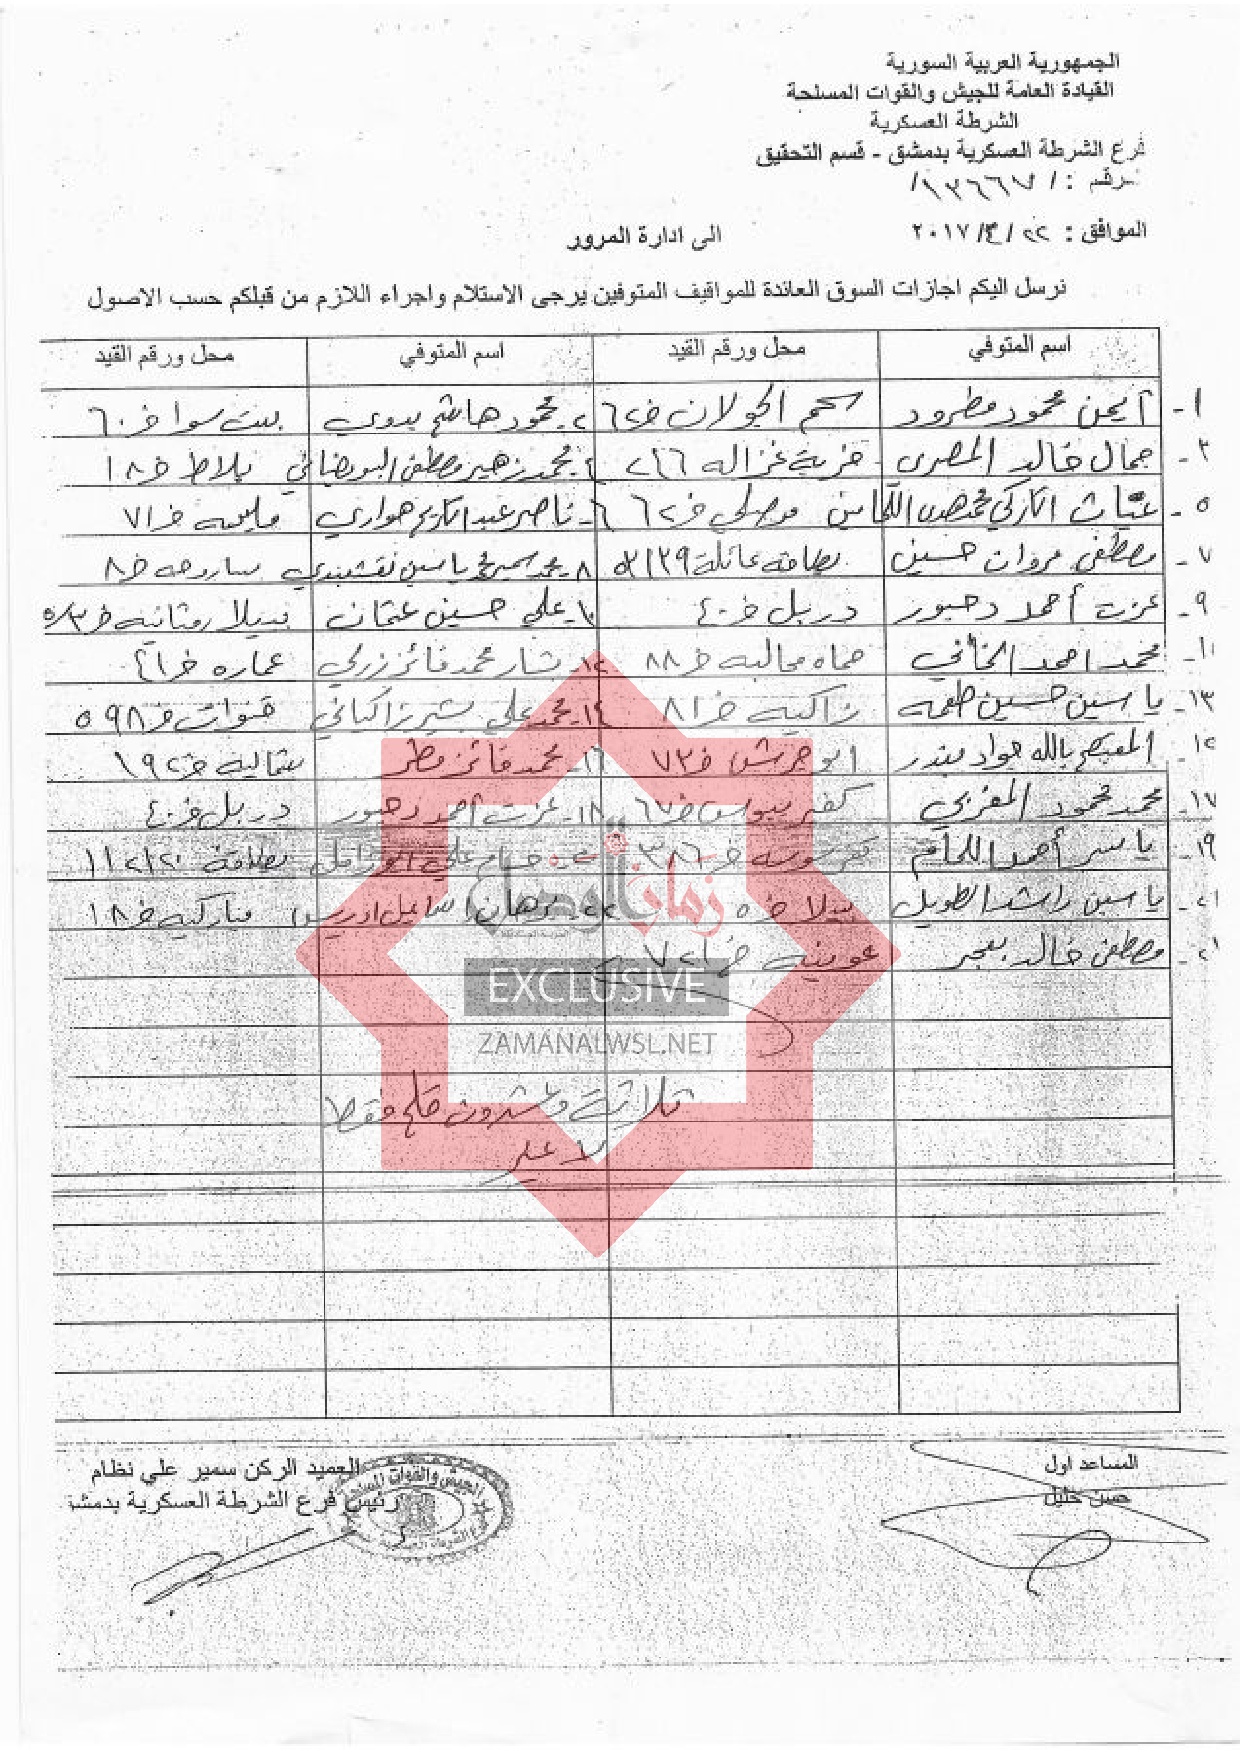 الجمهورية العربية السورية
القيادة العامة للجيش والقوات المسلحة
الشرطة العسكرية
فرع الشرطة العسكرية بدمشق - قسم التحقيق
رقم : /١٣٦٦٧/
الموافق : ٢٢ /٤/ ٢٠١٧
الى ادارة المرور
نرسل اليكم اجازات السوق العائدة للمواقيف المتوفين يرجى الاستلام واجراء اللازم من قبلكم حسب الاصول
اسم المتوفي محل ورقم القيد اسم المتوفي محل ورقم القيد
١- أيمن محمود مطرود سحم الجولان خ٦٢ ٢- محمود هاشم بدوي بيت سوا خ٦٠
٣- جمال خالد المصري خربة غزاله ٢٦٦ محمد زهير مصطفى البويضاني بلاط خ١٨
٥- غياث موصلي خ٦٢ ٦- ناصر عبد الكريم هواري خ٧١
٧- مصطفى مروان حسين بطاقة عائلة ٥٢١٣٩ ٨- محمد سمير محمد ياسين نقشبندي ساروجه خ٨
٩- عزت أحمد دحبور دربل خ٤٠ ١٠- علي حسين عثمان
١١- محمد احمد الخاني حماه خ٨٨ ١٢- بشار محمد فائز زركي عماره خ٢١
١٣- ياسين حسين طعمه زاكيه خ٨١ ١٤- محمد علي بشير زاكياني قنوات خ٥٩٨
١٢- المعتصم بالله جواد بندر ابو جريش خ٧٣ ١٦- محمد فائز مطر شماليه خ١٩٢
١٧- محمد محمود المغربي كفير يبوس خ٦٧ ١٨- عزت أحمد دحبور دربل خ٤٠
١٩- ياسر أحمد اللحام خ٣٨٦ علي بطاقة ١١٢١٢٠
٢١- ياسين راشد الطويل يلدا خ٥ ٢٢- برهان اسماعيل ادريس مباركيه خ١٨
٢١- مصطفى خالد بعجر عوينيه خ٧٢١
زمان الوصل
EXCLUSIVE
ZAMANALWSL.NET
ثلاثة وعشرون فقط
لا غير
المساعد اول
حسن خليل
العميد الركن سمير علي نظام
رئيس فرع الشرطة العسكرية بدمشق
الجيش والقوات المسلحة